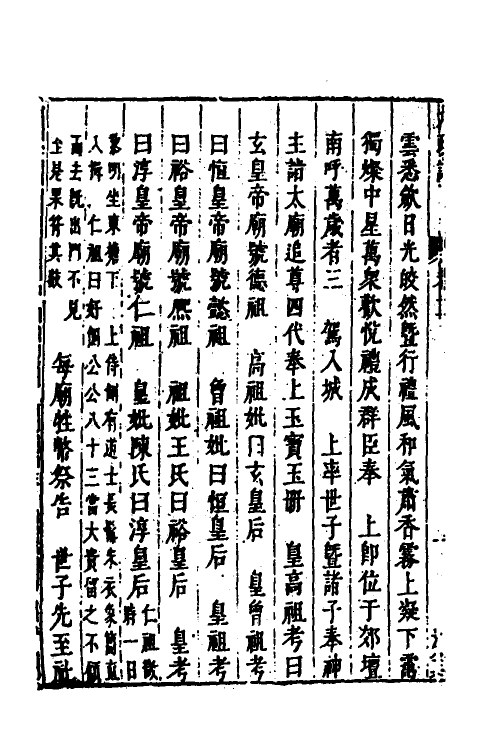 雲悉斂日光皎然暨行禮風和氣肅香霧上凝下霭
獨燦中星萬衆歡悅禮成群臣奉　上卽位于郊壇
南呼萬歲者三　駕入城　上率世子暨諸子奉神
主詣太廟追尊四代奉上玉寶玉冊　皇高祖考曰
玄皇帝廟號德祖　高祖妣曰玄皇后　皇曾祖考
曰恒皇帝廟號懿祖　曾祖妣曰恒皇后　皇祖考
曰裕皇帝廟號熈祖　祖妣王氏曰裕皇后　皇考
曰淳皇帝廟號仁祖　皇妣陳氏曰淳皇后
仁祖
時一日
黎明坐東簷下　上侍側有道士長髯朱衣象簡直
入揖　仁祖曰好個公公八十三當大貴留之不
而去旣出門不見
至是果符其數
每廟牲幣祭告　世子先至